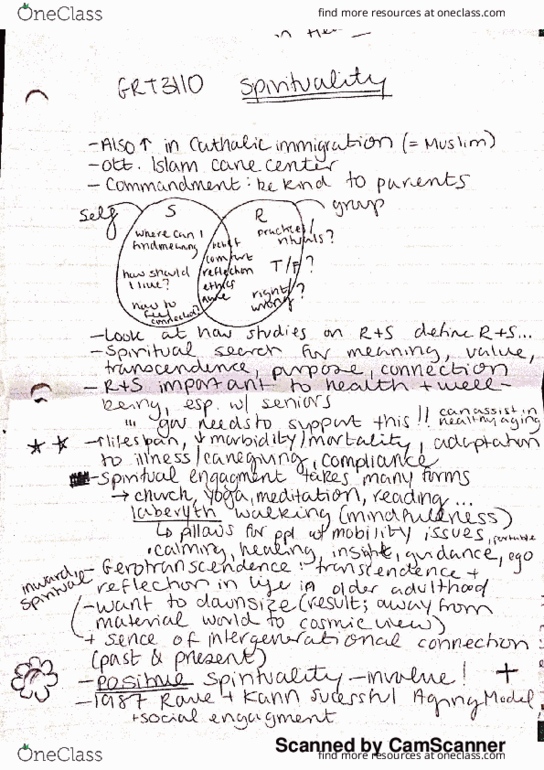 OneClass
find more resources at oneclass.com
GRT3110 Spirituality
-Also ↑ in Catholic immigration (= Muslim)
-ott. Islam care center
- Commandment: be kind to parents
self S R group
where can I find meaning
how should I live?
how to feel connected?
belief
comfort
reflection
ethics
awe
practices/
rituals?
T/F?
right/
wrong?
-Look at how studies on R+S define R+S...
-Spiritual search for meaning, value,
transcendence, purpose, connection
- R+S important to health + well-
being, esp. w/ seniors
!!! gov needs to support this !! can assist in
healthy aging
★★ -↑lifespan, ↓ morbidity/mortality, adaptation
to illness/caregiving, compliance
-Spiritual engagment takes many forms
→ church, yoga, meditation, reading...
laberyth walking (mindfulness)
↳ pillows for ppl w/ mobility issues, portable
• calming, healing, insight, guidance, ego
inward,
spiritual
- Gerotranscendence: transcendence +
reflection in life in older adulthood
-want to downsize (result; away from
material world to cosmic view)
+ sence of intergenerational connection
(past & present)
- positive spirituality -involve! +
- 1987 Rowe + Kahn sucessful Aging Model
+social engagment
Scanned by CamScanner
OneClass
find more resources at oneclass.com